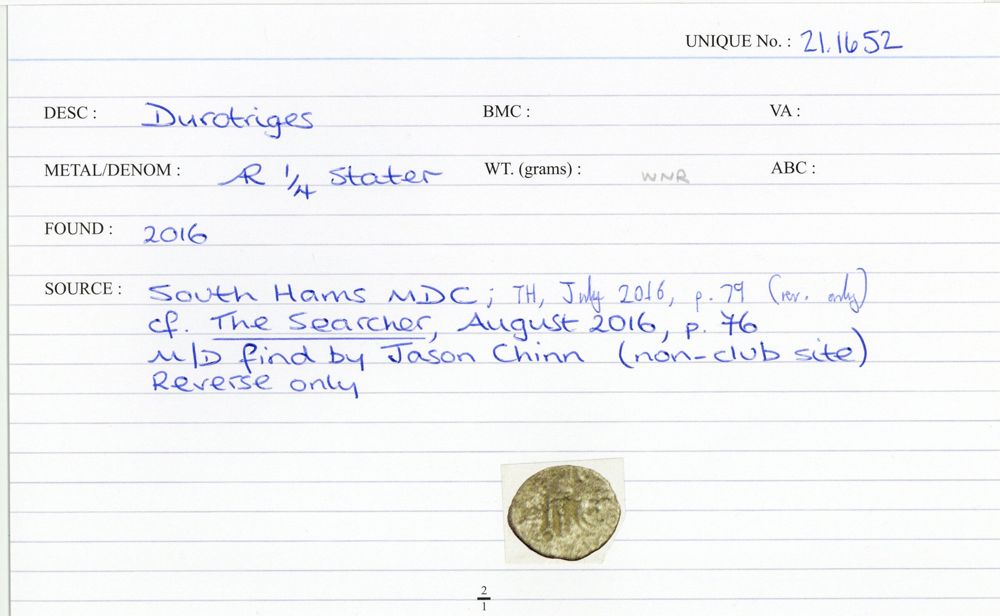 UNIQUE No. : 21.1652
DESC : Durotriges BMC : VA :
METAL/DENOM : AR 1/4 Stater WT. (grams) : WNR ABC :
FOUND : 2016
SOURCE : South Hams MDC; TH, July 2016, p. 79 (rev. only)
cf. The Searcher, August 2016, p. 76
M/D find by Jason Chinn (non-club site)
Reverse only
2
1